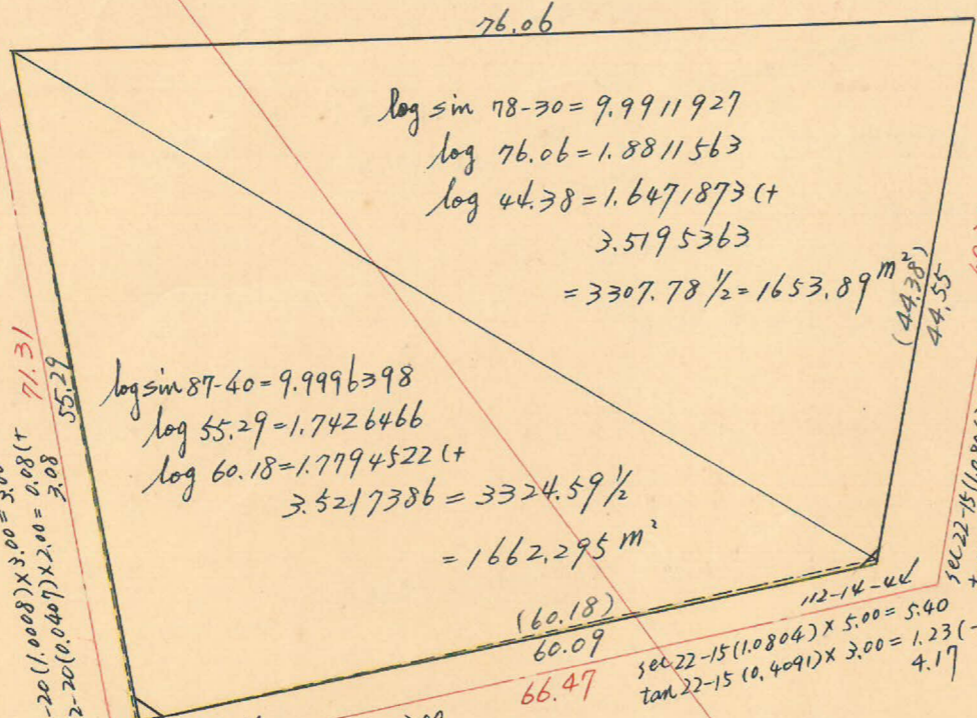 76.06
log sin 78-30 = 9.9911927
log 76.06 = 1.8811563
log 44.38 = 1.6471873 (+
3.5195363
= 3307.78 1/2 = 1653.89 m²
(44.38)
44.55
71.31
55.29
log sin 87-40 = 9.9996398
log 55.29 = 1.7426466
log 60.18 = 1.7794522 (+
3.5217386 = 3324.59 1/2
= 1662.295 m²
-20 (1.0008) × 3.00 = 3.00
2-20 (0.0407) × 2.00 = 0.08 (+
3.08
(60.18)
60.09
66.47
112-14-44
sec 22-15 (1.0804) × 5.00 = 5.40
tan 22-15 (0.4091) × 3.00 = 1.23 (-
4.17
sec 22-15